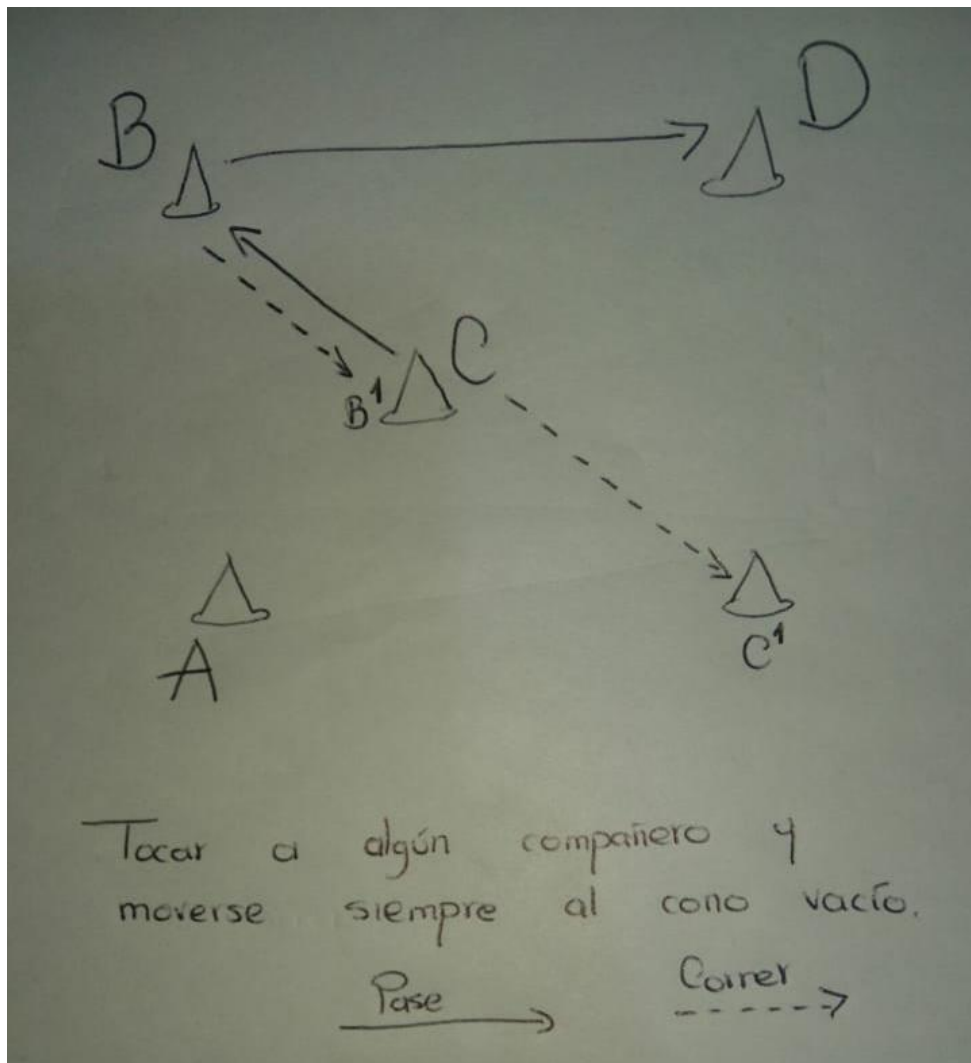 B
D
C
B¹
A
C¹
Tocar a algún compañero y
moverse siempre al cono vacío.
Pase
Correr